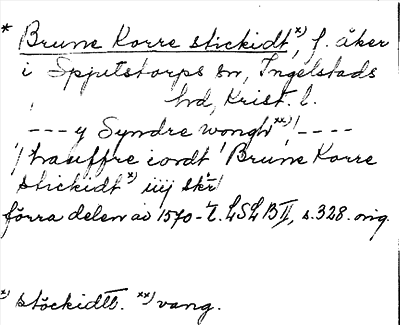 * Brune Korre stickidt x), f. åker
i Spjutstorps sn, Ingelstads
hd, Krist. l.
--- y Syndre wongh xx) ----
hauffre iordt Brune Korre
stickidt x) iiij skr
förra delen av 1570-t. LSLB II, s. 328. orig.
x) stöckidtt. xx) vang.